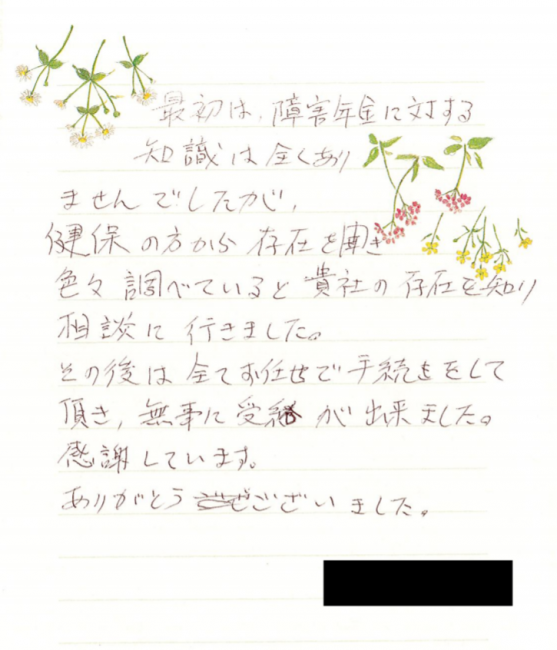 最初は、障害年金に対する
知識は全くあり
ませんでしたが、
健保の方から存在を聞き
色々調べていると貴社の存在を知り
相談に行きました。
その後は全てお任せで手続きをして
頂き、無事に受給が出来ました。
感謝しています。
ありがとうございました。